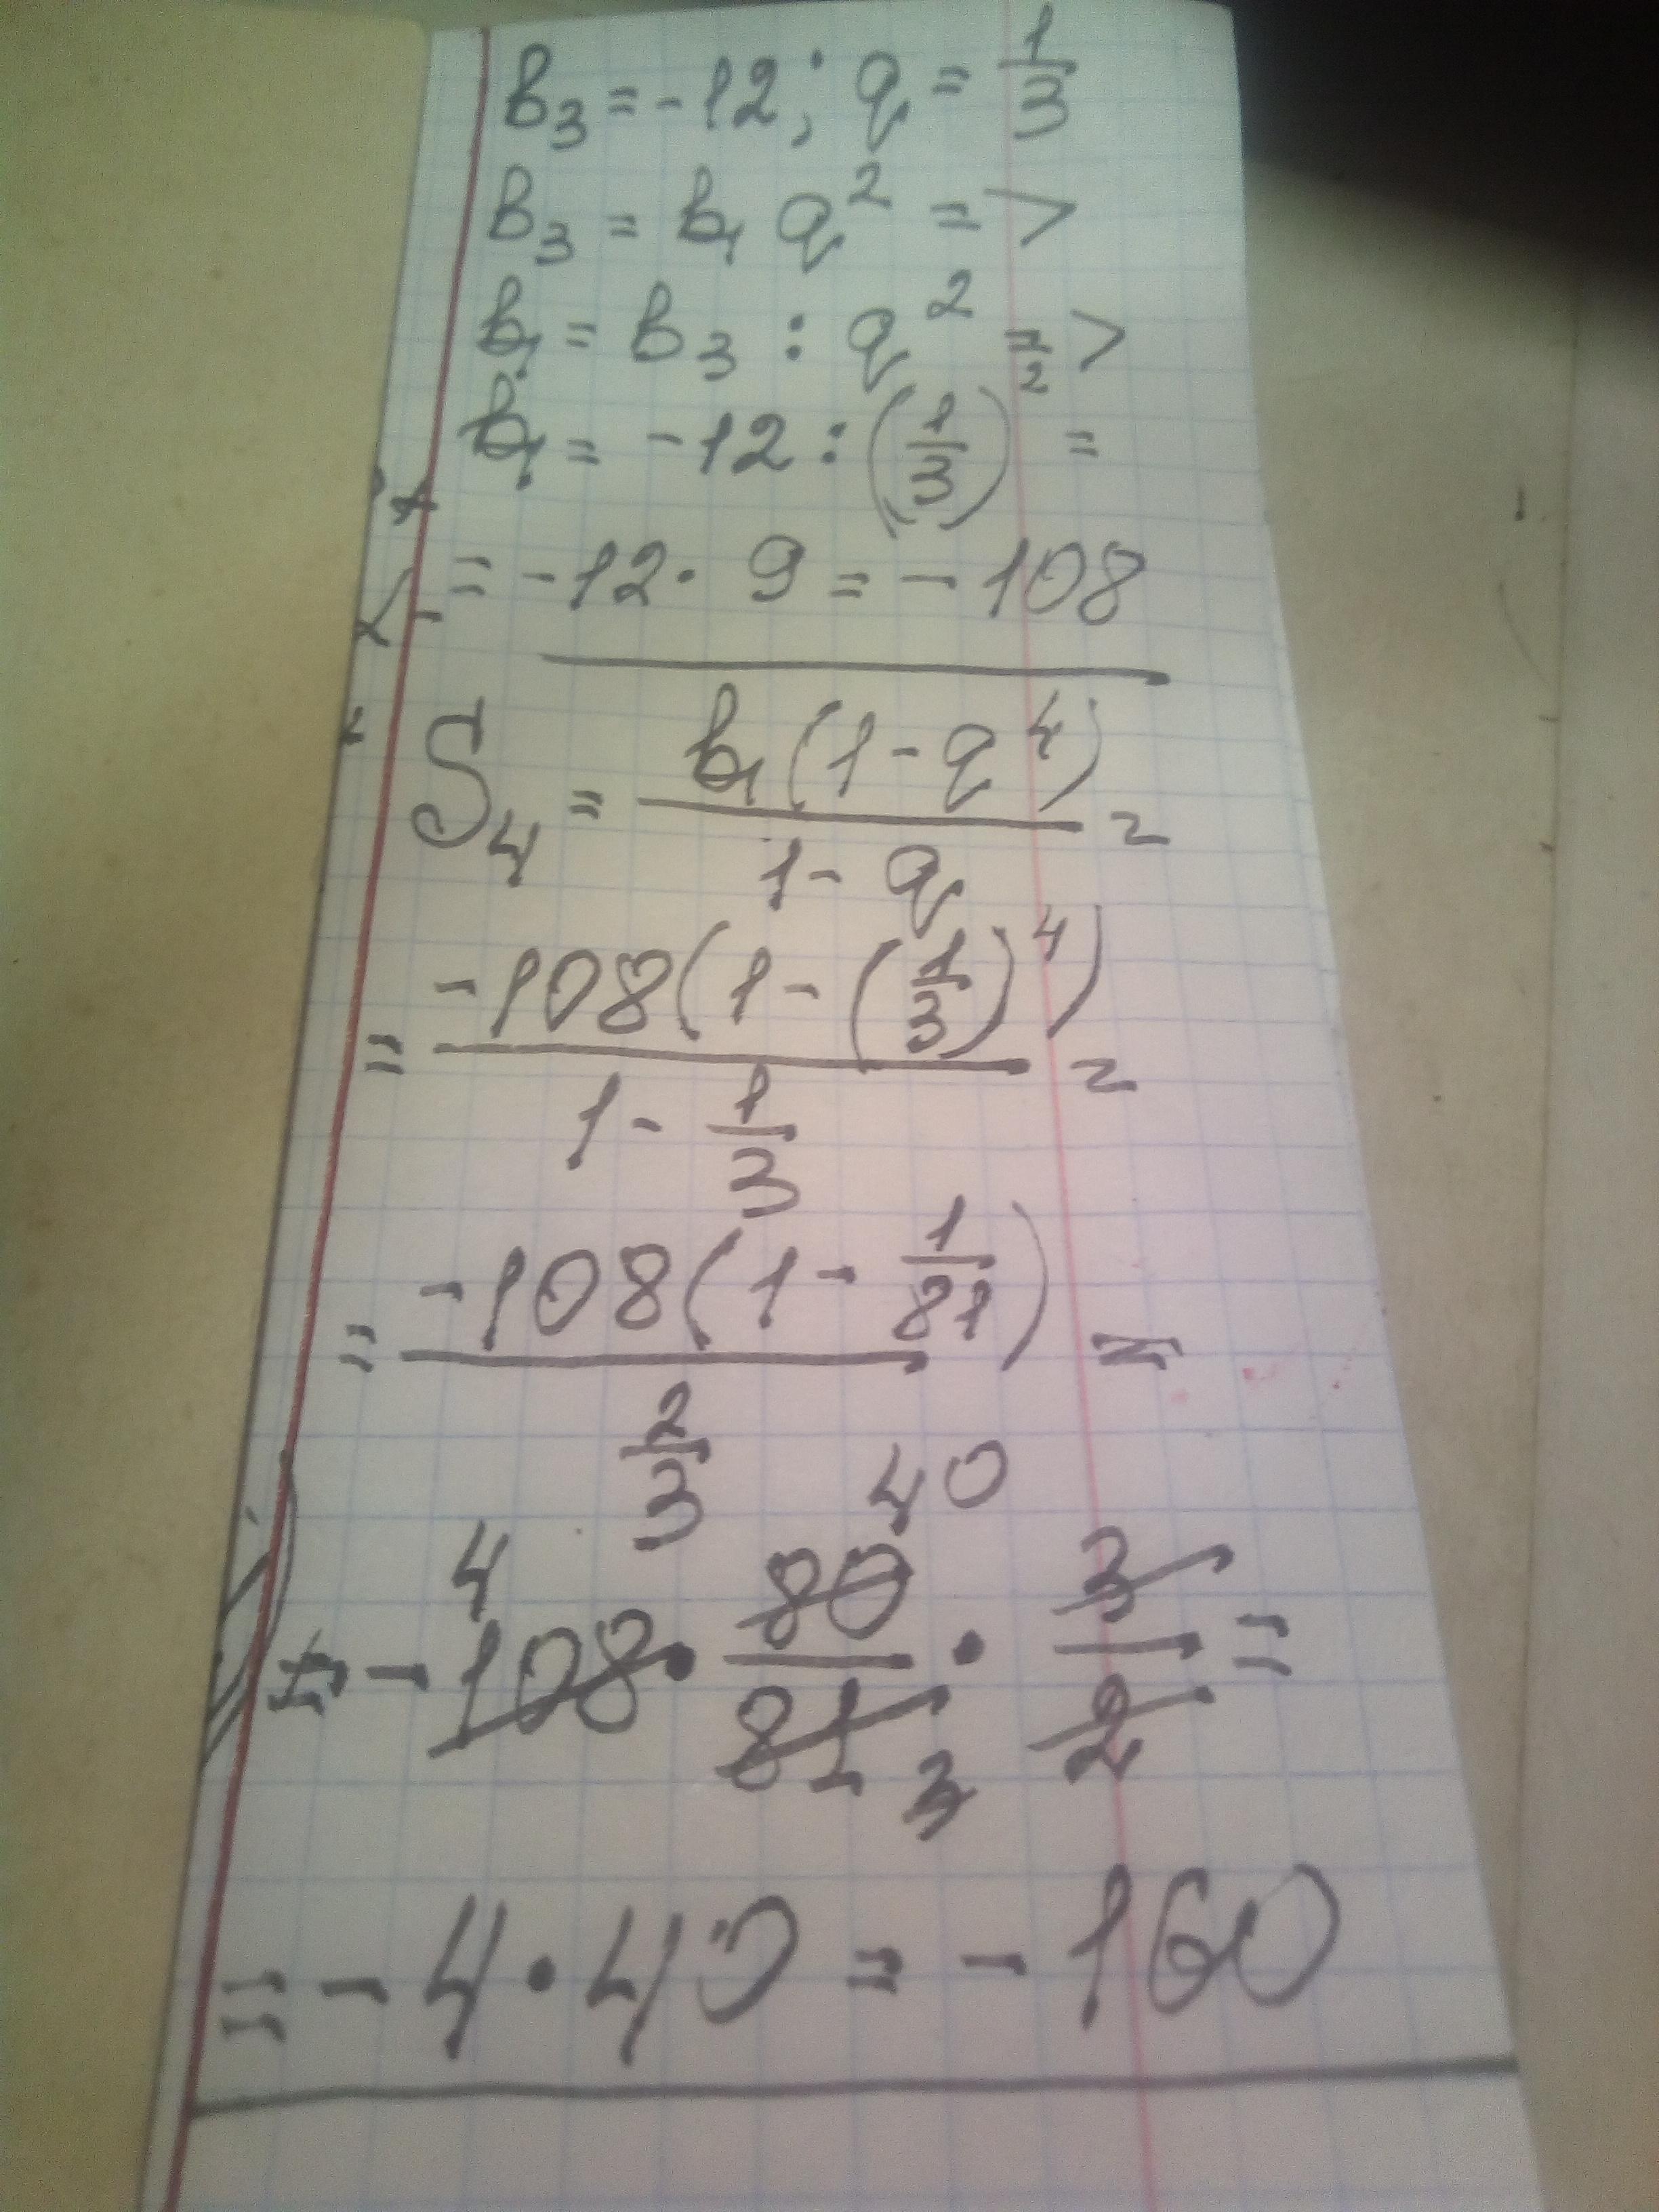 b₃ = -12; q = 1/3
b₃ = b₁ q² =>
b₁ = b₃ : q² =>
b₁ = -12 : (1/3)² =
= -12 · 9 = -108
S₄ = b₁(1 - q⁴) / 1 - q =
= -108(1 - (1/3)⁴) / 1 - 1/3 =
= -108(1 - 1/81) / 2/3 =
4 40
= -108 · 80/81 · 3/2 =
3
= -4 · 40 = -160